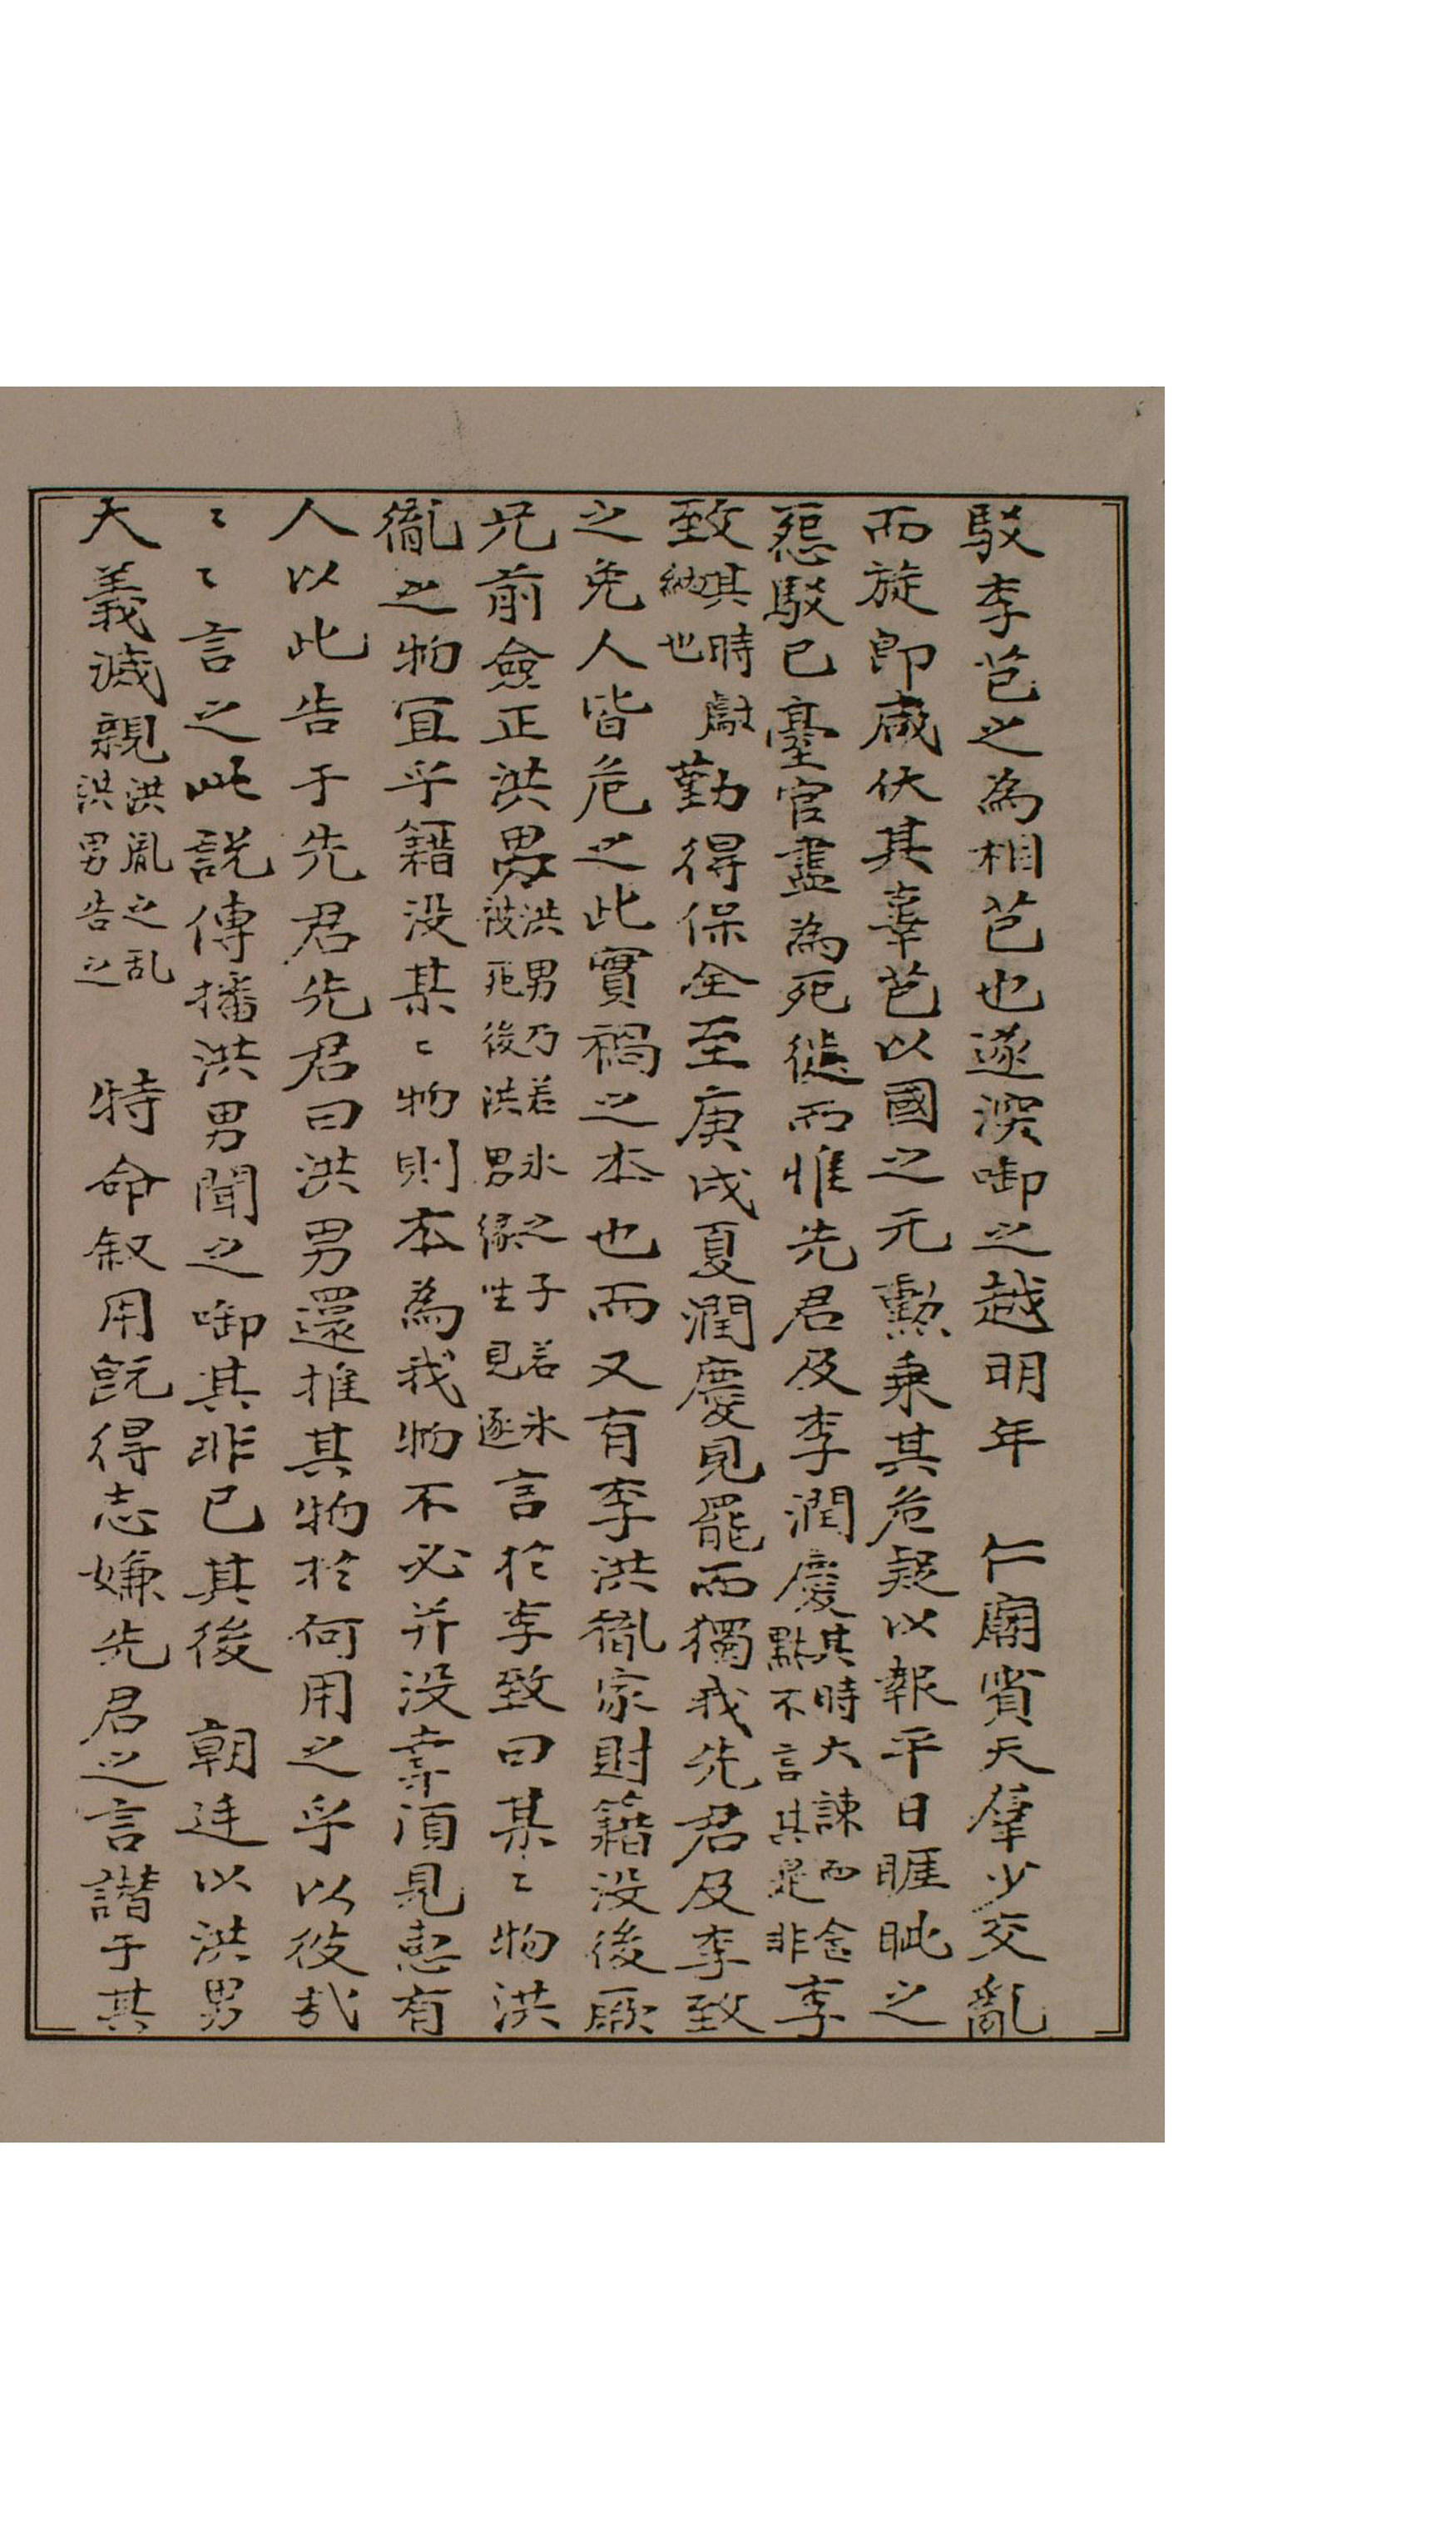 駁李芑之為相芑也遂深啣之越明年 仁廟賓天羣少交亂
而旋即咸伏其辜芑以國之元勲乗其危疑以報平日睚眦之
怨駁己臺官盡為死徙而惟先君及李潤慶其時大諫而含點不言其是非李
致其時獻納也勤得保全至庚戌夏潤慶見罷而獨我先君及李致
之免人皆危之此實禍之本也而又有李洪胤家財籍没後厥
兄前僉正洪男洪男乃若氷之子若氷被死後洪男緣坐見逐言於李致曰某〻物洪
胤之物冝乎籍没某〻物則本為我物不必并没幸須見恵有
人以此告于先君先君曰洪男還推其物於何用之乎以彼哉
〻〻言之此説傳播洪男聞之啣其非己其後 朝廷以洪男
大義滅親洪胤之乱洪男告之 特命叙用旣得志嫌先君之言譖于其